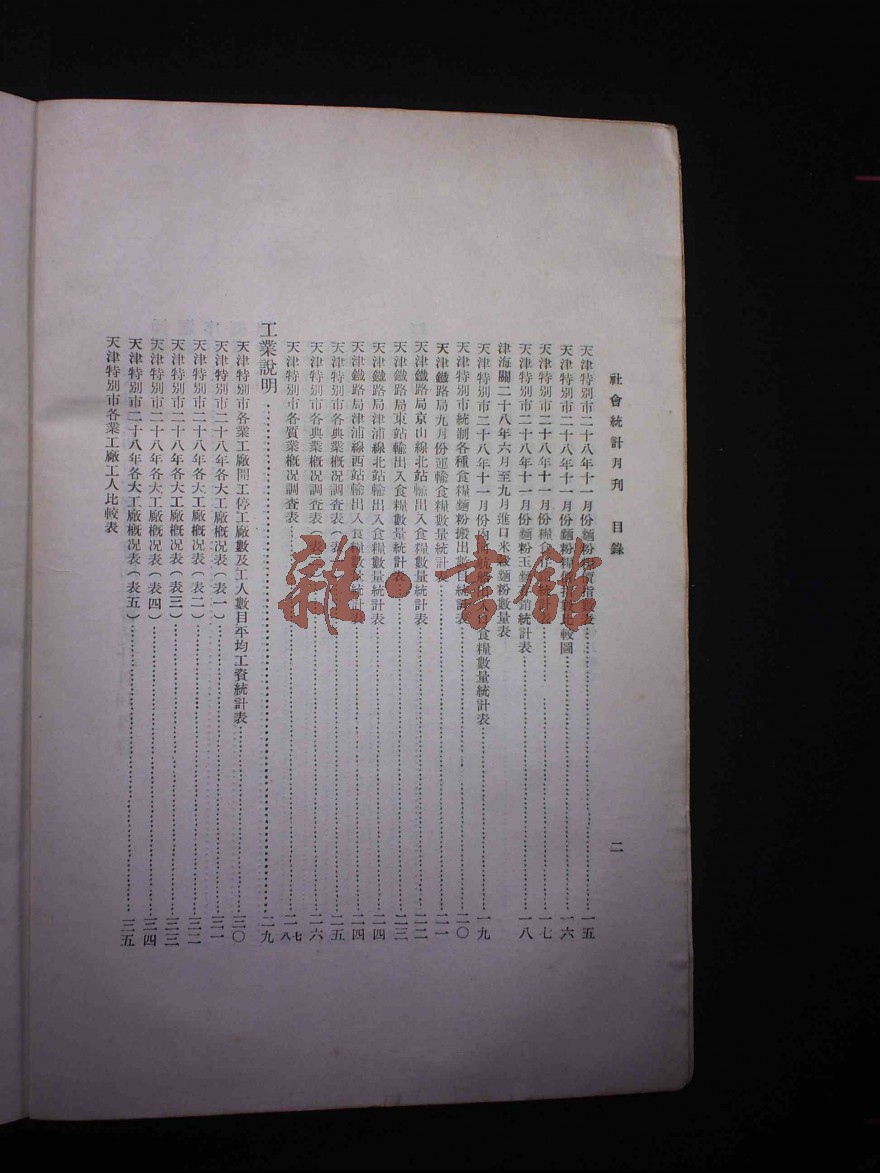 社會統計月刊 目錄 二
天津特別市二十八年十一月份麵粉 指數表 一五
天津特別市二十八年十一月份麵粉糧 指數比較圖 一六
天津特別市二十八年十一月份糧食 統計表 一七
天津特別市二十八年十一月份麵粉玉麵 銷統計表 一八
津海關二十八年六月至九月進口米 麵粉數量表
天津特別市二十八年十一月份內河 出入口食糧數量統計表 一九
天津特別市統制各種食糧麵粉搬出 目統計表 二〇
天津鐵路局九月份運輸食糧數量統計 二一
天津鐵路局京山線北站輸出入食糧數量統計表 二二
天津鐵路局東站輸出入食糧數量統計表 二三
天津鐵路局津浦線北站輸出入食糧數量統計表 二四
天津鐵路局津浦線西站輸出入食糧數量統計表 二四
天津特別市各典業概況調查表(表一) 二五
天津特別市各典業概況調查表(表二) 二六
天津特別市各質業概況調查表 二七 二八
工業說明 二九
天津特別市各業工廠開工停工廠數及工人數目年均工資統計表 三〇
天津特別市二十八年各大工廠概況表(表一) 三一
天津特別市二十八年各大工廠概況表(表二) 三二
天津特別市二十八年各大工廠概況表(表三) 三三
天津特別市二十八年各大工廠概況表(表四) 三四
天津特別市二十八年各大工廠概況表(表五) 三五
天津特別市各業工廠工人比較表
雜書館